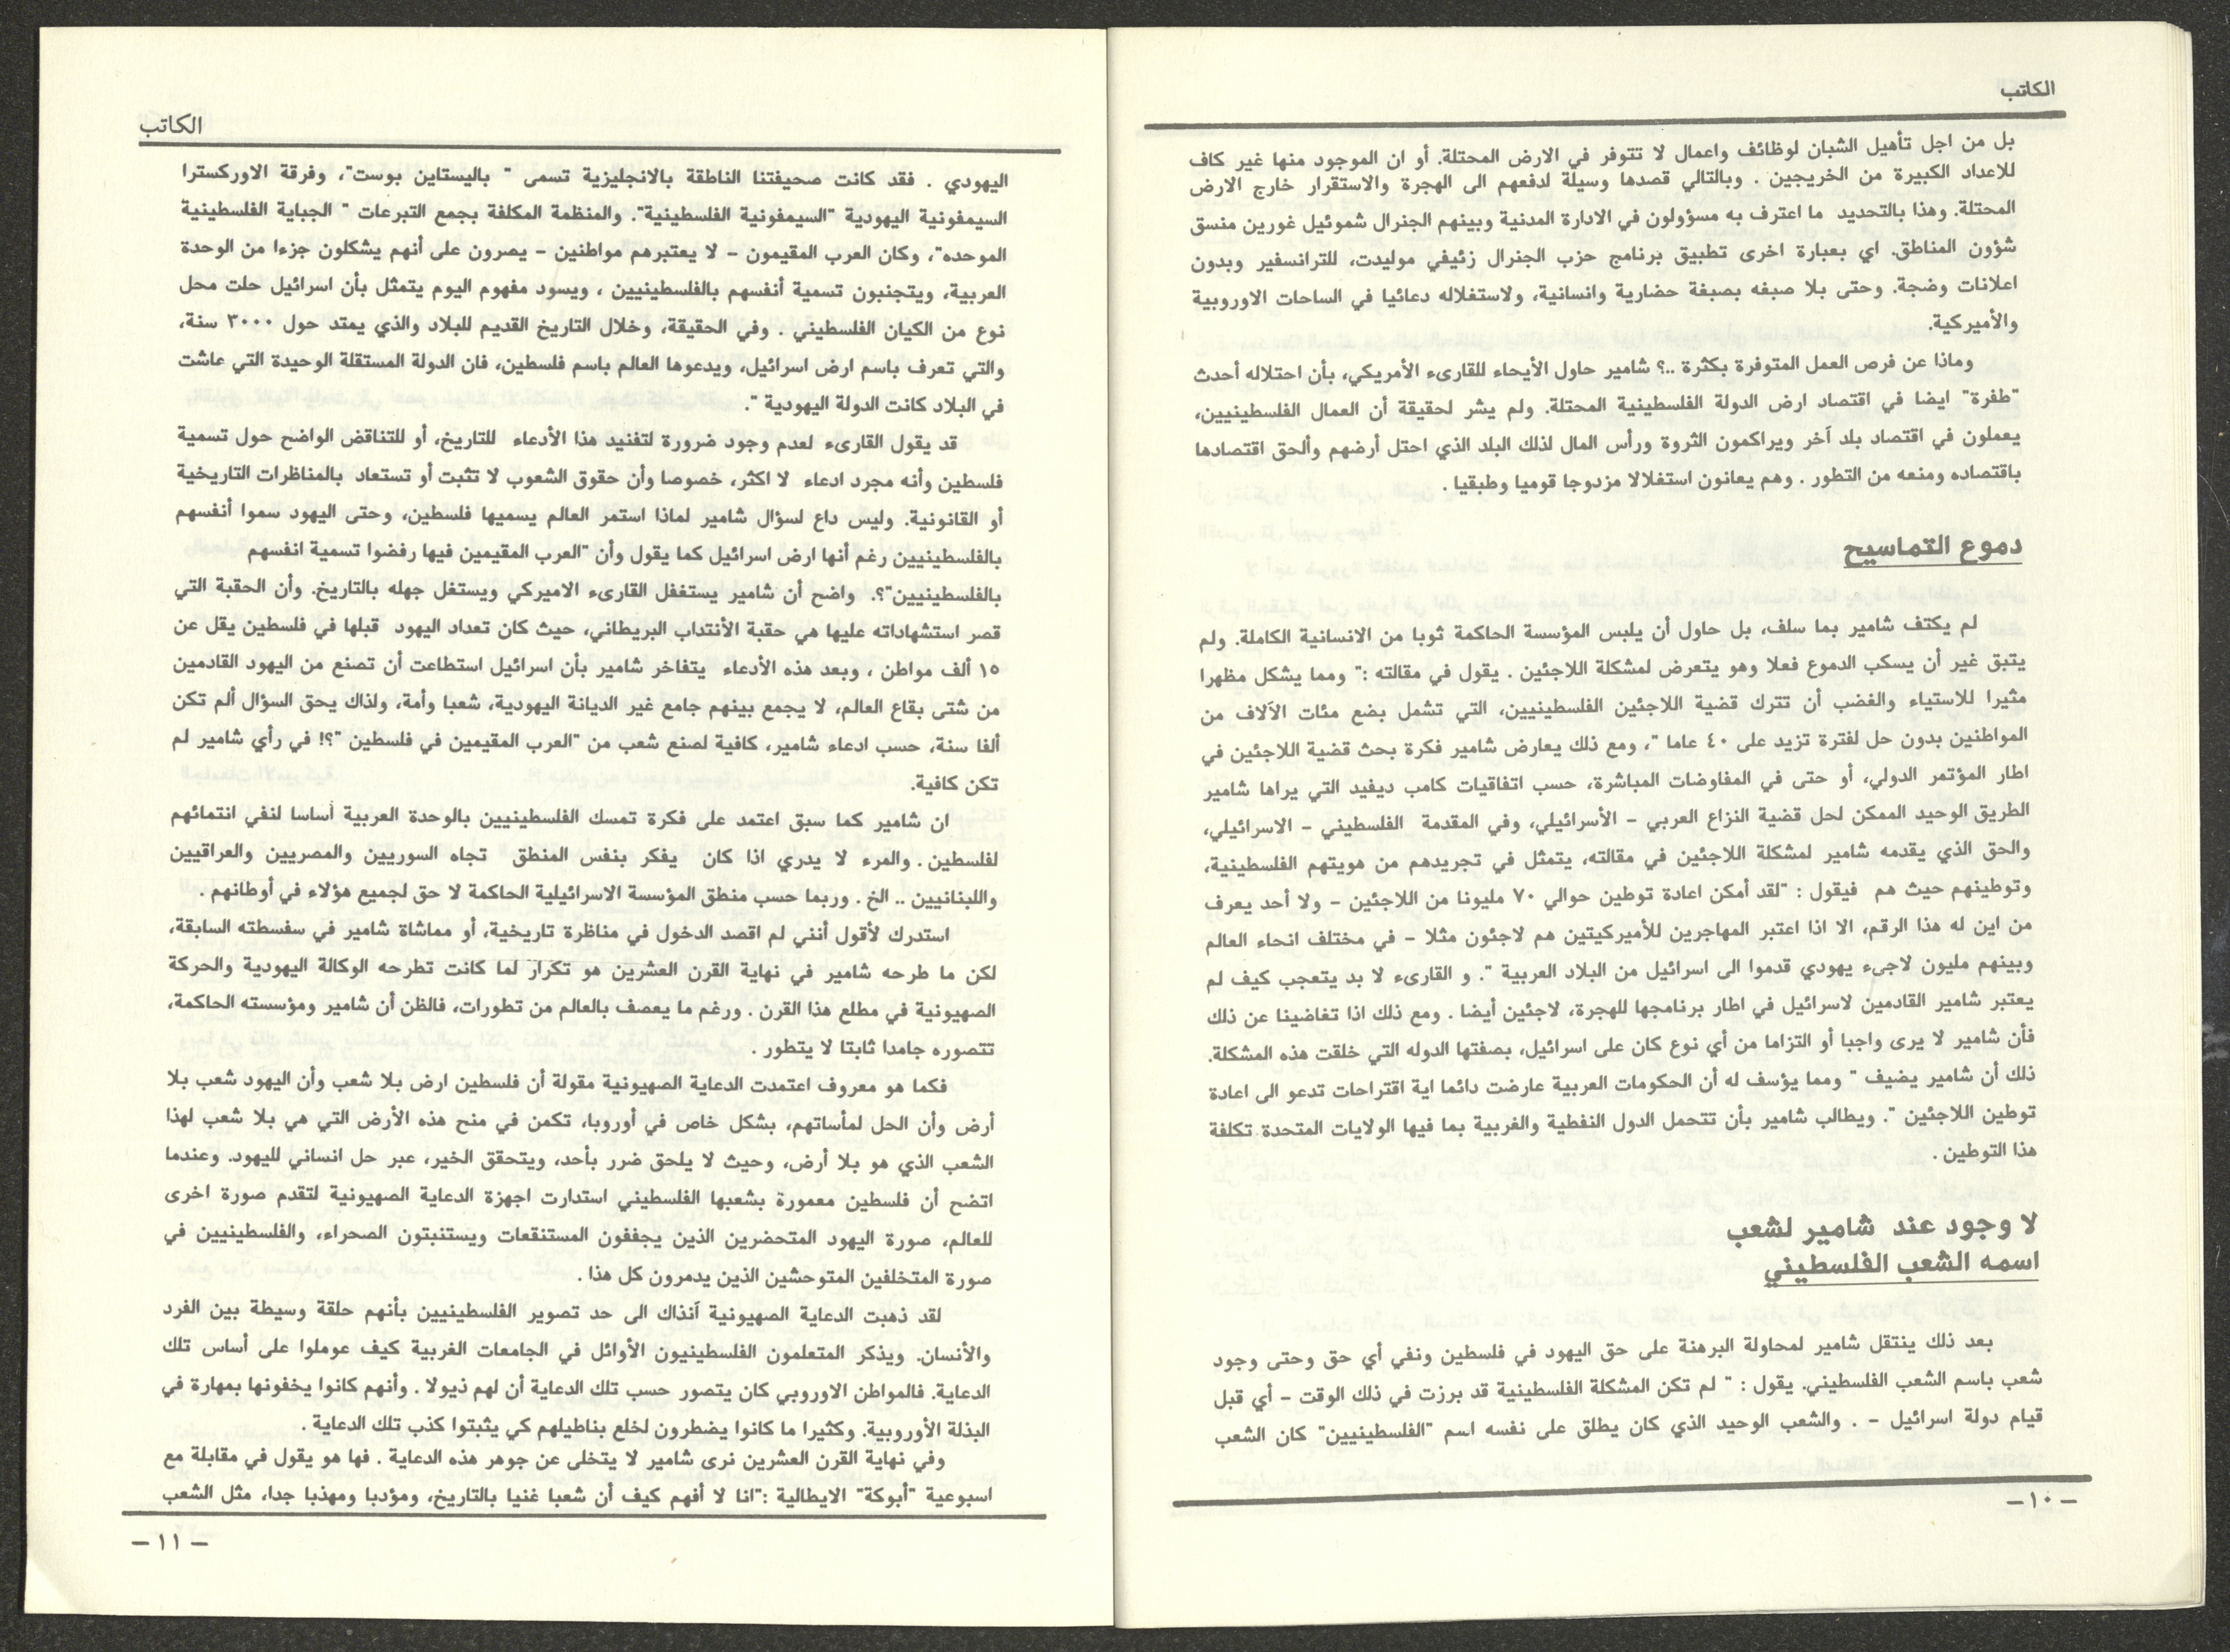 الكاتب
بل من اجل تأهيل الشبان لوظائف واعمال لا تتوفر في الارض المحتلة. أو ان الموجود منها غير كاف
للاعداد الكبيرة من الخريجين . وبالتالي قصدها وسيلة لدفعهم الى الهجرة والاستقرار خارج الارض
المحتلة. وهذا بالتحديد ما اعترف به مسؤولون في الادارة المدنية وبينهم الجنرال شموئيل غورين منسق
شؤون المناطق. اي بعبارة اخرى تطبيق برنامج حزب الجنرال زئيفي موليدت، للترانسفير وبدون
اعلانات وضجة. وحتى بلا صبغه بصبغة حضارية وانسانية، ولاستغلاله دعائيا في الساحات الاوروبية
والأميركية.
وماذا عن فرص العمل المتوفرة بكثرة ..؟ شامير حاول الأيحاء للقارىء الأمريكي، بأن احتلاله أحدث
"طفرة" ايضا في اقتصاد ارض الدولة الفلسطينية المحتلة. ولم يشر لحقيقة أن العمال الفلسطينيين،
يعملون في اقتصاد بلد آخر ويراكمون الثروة ورأس المال لذلك البلد الذي احتل أرضهم وألحق اقتصادها
باقتصاده ومنعه من التطور . وهم يعانون استغلالا مزدوجا قوميا وطبقيا .
دموع التماسيح
لم يكتف شامير بما سلف، بل حاول أن يلبس المؤسسة الحاكمة ثوبا من الانسانية الكاملة. ولم
يتبق غير أن يسكب الدموع فعلا وهو يتعرض لمشكلة اللاجئين . يقول في مقالته :" ومما يشكل مظهرا
مثيرا للاستياء والغضب أن تترك قضية اللاجئين الفلسطينيين، التي تشمل بضع مئات الآلاف من
المواطنين بدون حل لفترة تزيد على ٤٠ عاما "، ومع ذلك يعارض شامير فكرة بحث قضية اللاجئين في
اطار المؤتمر الدولي، أو حتى في المفاوضات المباشرة، حسب اتفاقيات كامب ديفيد التي يراها شامير
الطريق الوحيد الممكن لحل قضية النزاع العربي – الأسرائيلي، وفي المقدمة الفلسطيني – الاسرائيلي،
والحق الذي يقدمه شامير لمشكلة اللاجئين في مقالته، يتمثل في تجريدهم من هويتهم الفلسطينية،
وتوطينهم حيث هم فيقول : "لقد أمكن اعادة توطين حوالي ٧٠ مليونا من اللاجئين – ولا أحد يعرف
من اين له هذا الرقم، الا اذا اعتبر المهاجرين للأميركيتين هم لاجئون مثلا – في مختلف انحاء العالم
وبينهم مليون لاجىء يهودي قدموا الى اسرائيل من البلاد العربية ". و القارىء لا بد يتعجب كيف لم
يعتبر شامير القادمين لاسرائيل في اطار برنامجها للهجرة، لاجئين أيضا . ومع ذلك اذا تغاضينا عن ذلك
فأن شامير لا يرى واجبا أو التزاما من أي نوع كان على اسرائيل، بصفتها الدوله التي خلقت هذه المشكلة.
ذلك أن شامير يضيف " ومما يؤسف له أن الحكومات العربية عارضت دائما اية اقتراحات تدعو الى اعادة
توطين اللاجئين ". ويطالب شامير بأن تتحمل الدول النفطية والغربية بما فيها الولايات المتحدة تكلفة
هذا التوطين .
لا وجود عند شامير لشعب
اسمه الشعب الفلسطيني
بعد ذلك ينتقل شامير لمحاولة البرهنة على حق اليهود في فلسطين ونفي أي حق وحتى وجود
شعب باسم الشعب الفلسطيني. يقول : " لم تكن المشكلة الفلسطينية قد برزت في ذلك الوقت – أي قبل
قيام دولة اسرائيل – . والشعب الوحيد الذي كان يطلق على نفسه اسم "الفلسطينيين" كان الشعب
– ١٠ –
الكاتب
اليهودي . فقد كانت صحيفتنا الناطقة بالانجليزية تسمى " باليستاين بوست"، وفرقة الاوركسترا
السيمفونية اليهودية "السيمفونية الفلسطينية". والمنظمة المكلفة بجمع التبرعات " الجباية الفلسطينية
الموحده"، وكان العرب المقيمون – لا يعتبرهم مواطنين – يصرون على أنهم يشكلون جزءا من الوحدة
العربية، ويتجنبون تسمية أنفسهم بالفلسطينيين ، ويسود مفهوم اليوم يتمثل بأن اسرائيل حلت محل
نوع من الكيان الفلسطيني . وفي الحقيقة، وخلال التاريخ القديم للبلاد والذي يمتد حول ٣٠٠٠ سنة،
والتي تعرف باسم ارض اسرائيل، ويدعوها العالم باسم فلسطين، فان الدولة المستقلة الوحيدة التي عاشت
في البلاد كانت الدولة اليهودية ".
قد يقول القارىء لعدم وجود ضرورة لتفنيد هذا الأدعاء للتاريخ، أو للتناقض الواضح حول تسمية
فلسطين وأنه مجرد ادعاء لا اكثر، خصوصا وأن حقوق الشعوب لا تثبت أو تستعاد بالمناظرات التاريخية
أو القانونية. وليس داع لسؤال شامير لماذا استمر العالم يسميها فلسطين، وحتى اليهود سموا أنفسهم
بالفلسطينيين رغم أنها ارض اسرائيل كما يقول وأن "العرب المقيمين فيها رفضوا تسمية انفسهم
بالفلسطينيين"؟. واضح أن شامير يستغفل القارىء الاميركي ويستغل جهله بالتاريخ. وأن الحقبة التي
قصر استشهاداته عليها هي حقبة الأنتداب البريطاني، حيث كان تعداد اليهود قبلها في فلسطين يقل عن
١٥ ألف مواطن ، وبعد هذه الأدعاء يتفاخر شامير بأن اسرائيل استطاعت أن تصنع من اليهود القادمين
من شتى بقاع العالم، لا يجمع بينهم جامع غير الديانة اليهودية، شعبا وأمة، ولذاك يحق السؤال ألم تكن
ألفا سنة، حسب ادعاء شامير، كافية لصنع شعب من "العرب المقيمين في فلسطين "؟! في رأي شامير لم
تكن كافية.
ان شامير كما سبق اعتمد على فكرة تمسك الفلسطينيين بالوحدة العربية أساسا لنفي انتمائهم
لفلسطين . والمرء لا يدري اذا كان يفكر بنفس المنطق تجاه السوريين والمصريين والعراقيين
واللبنانيين .. الخ . وربما حسب منطق المؤسسة الاسرائيلية الحاكمة لا حق لجميع هؤلاء في أوطانهم .
استدرك لأقول أنني لم اقصد الدخول في مناظرة تاريخية، أو مماشاة شامير في سفسطته السابقة،
لكن ما طرحه شامير في نهاية القرن العشرين هو تكرار لما كانت تطرحه الوكالة اليهودية والحركة
الصهيونية في مطلع هذا القرن . ورغم ما يعصف بالعالم من تطورات، فالظن أن شامير ومؤسسته الحاكمة،
تتصوره جامدا ثابتا لا يتطور .
فكما هو معروف اعتمدت الدعاية الصهيونية مقولة أن فلسطين ارض بلا شعب وأن اليهود شعب بلا
أرض وأن الحل لمأساتهم، بشكل خاص في أوروبا، تكمن في منح هذه الأرض التي هي بلا شعب لهذا
الشعب الذي هو بلا أرض، وحيث لا يلحق ضرر بأحد، ويتحقق الخير، عبر حل انساني لليهود. وعندما
اتضح أن فلسطين معمورة بشعبها الفلسطيني استدارت اجهزة الدعاية الصهيونية لتقدم صورة اخرى
للعالم، صورة اليهود المتحضرين الذين يجففون المستنقعات ويستنبتون الصحراء، والفلسطينيين في
صورة المتخلفين المتوحشين الذين يدمرون كل هذا .
لقد ذهبت الدعاية الصهيونية آنذاك الى حد تصوير الفلسطينيين بأنهم حلقة وسيطة بين الفرد
والأنسان. ويذكر المتعلمون الفلسطينيون الأوائل في الجامعات الغربية كيف عوملوا على أساس تلك
الدعاية. فالمواطن الاوروبي كان يتصور حسب تلك الدعاية أن لهم ذيولا . وأنهم كانوا يخفونها بمهارة في
البذلة الأوروبية. وكثيرا ما كانوا يضطرون لخلع بناطيلهم كي يثبتوا كذب تلك الدعاية .
وفي نهاية القرن العشرين نرى شامير لا يتخلى عن جوهر هذه الدعاية . فها هو يقول في مقابلة مع
اسبوعية "أبوكة" الايطالية :"انا لا أفهم كيف أن شعبا غنيا بالتاريخ، ومؤدبا ومهذبا جدا، مثل الشعب
– ١١ –